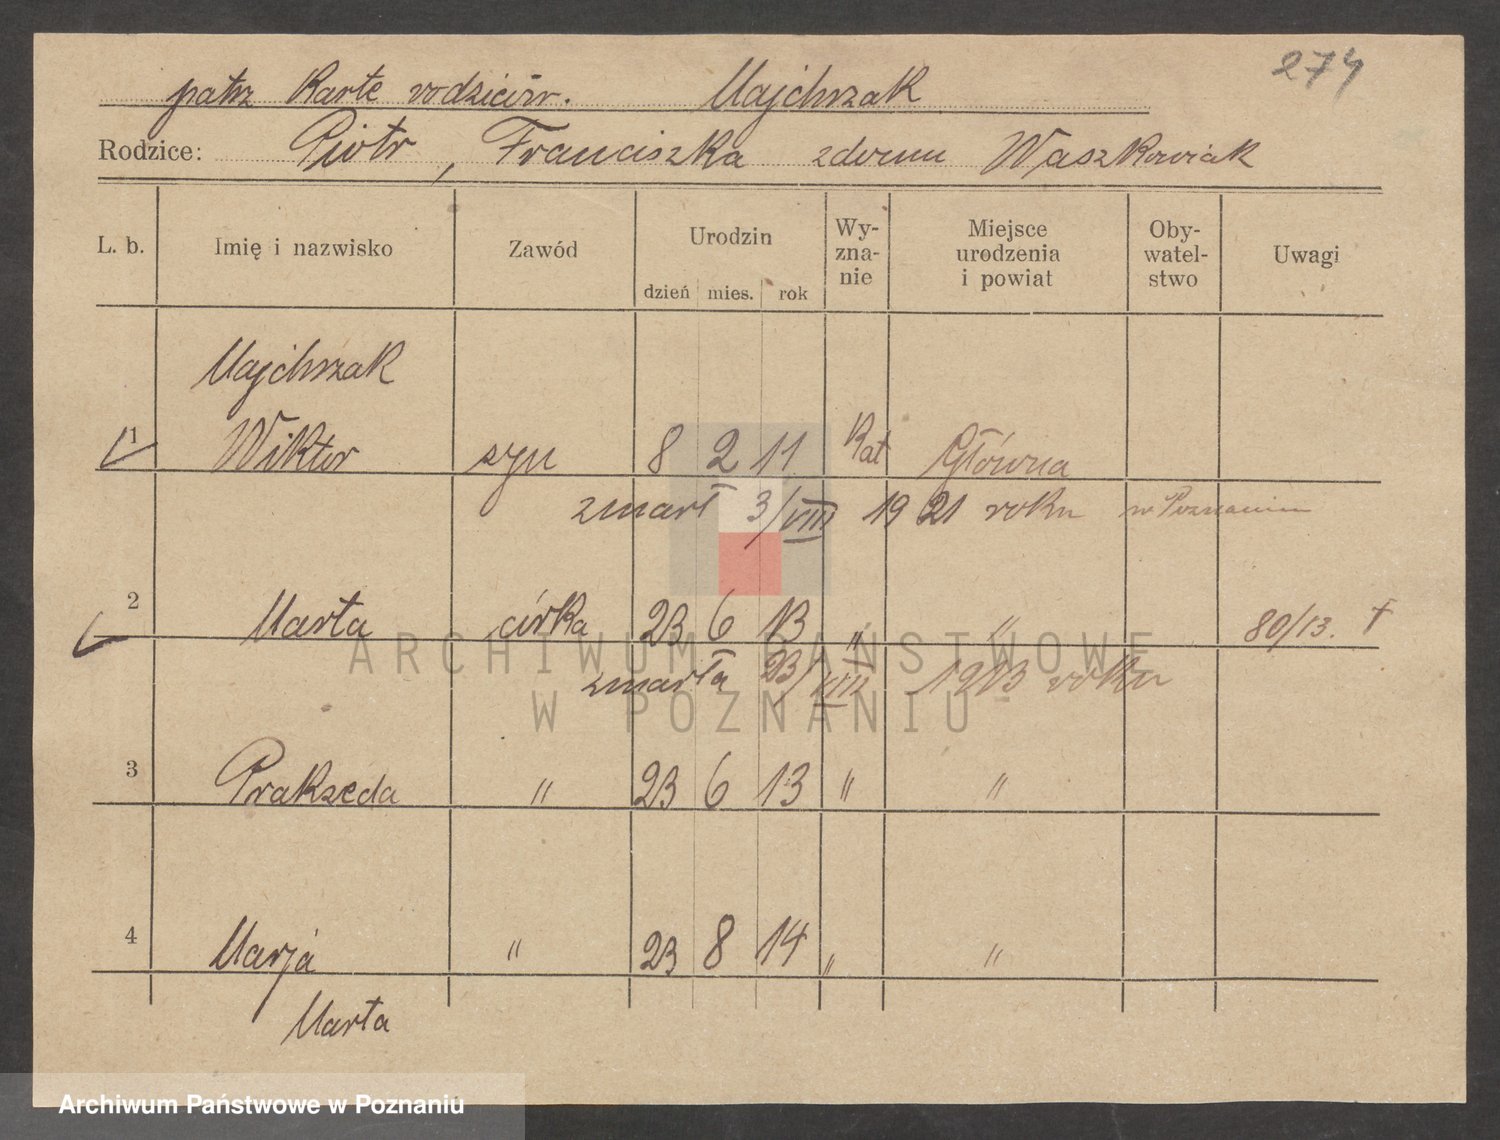 274
patrz Kartę rodziców. Majchrzak
Rodzice: Piotr, Franciszka zdomu Waszkowiak
L. b. Imię i nazwisko Zawód Urodzin dzień mies. rok Wy-zna-nie Miejsce urodzenia i powiat Oby-watel-stwo Uwagi
Majchrzak
1 Wiktor syn 8 2 11 Kat Główna
zmarł 3/VIII 1921 roku w Poznaniu
2 Marta córka 23 6 13 " " 80/13. †
zmarła 23/VIII 1913 roku
3 Prakseda " 23 6 13 " "
4 Marja " 23 8 14 " "
Marta
ARCHIWUM PAŃSTWOWE
W POZNANIU
Archiwum Państwowe w Poznaniu